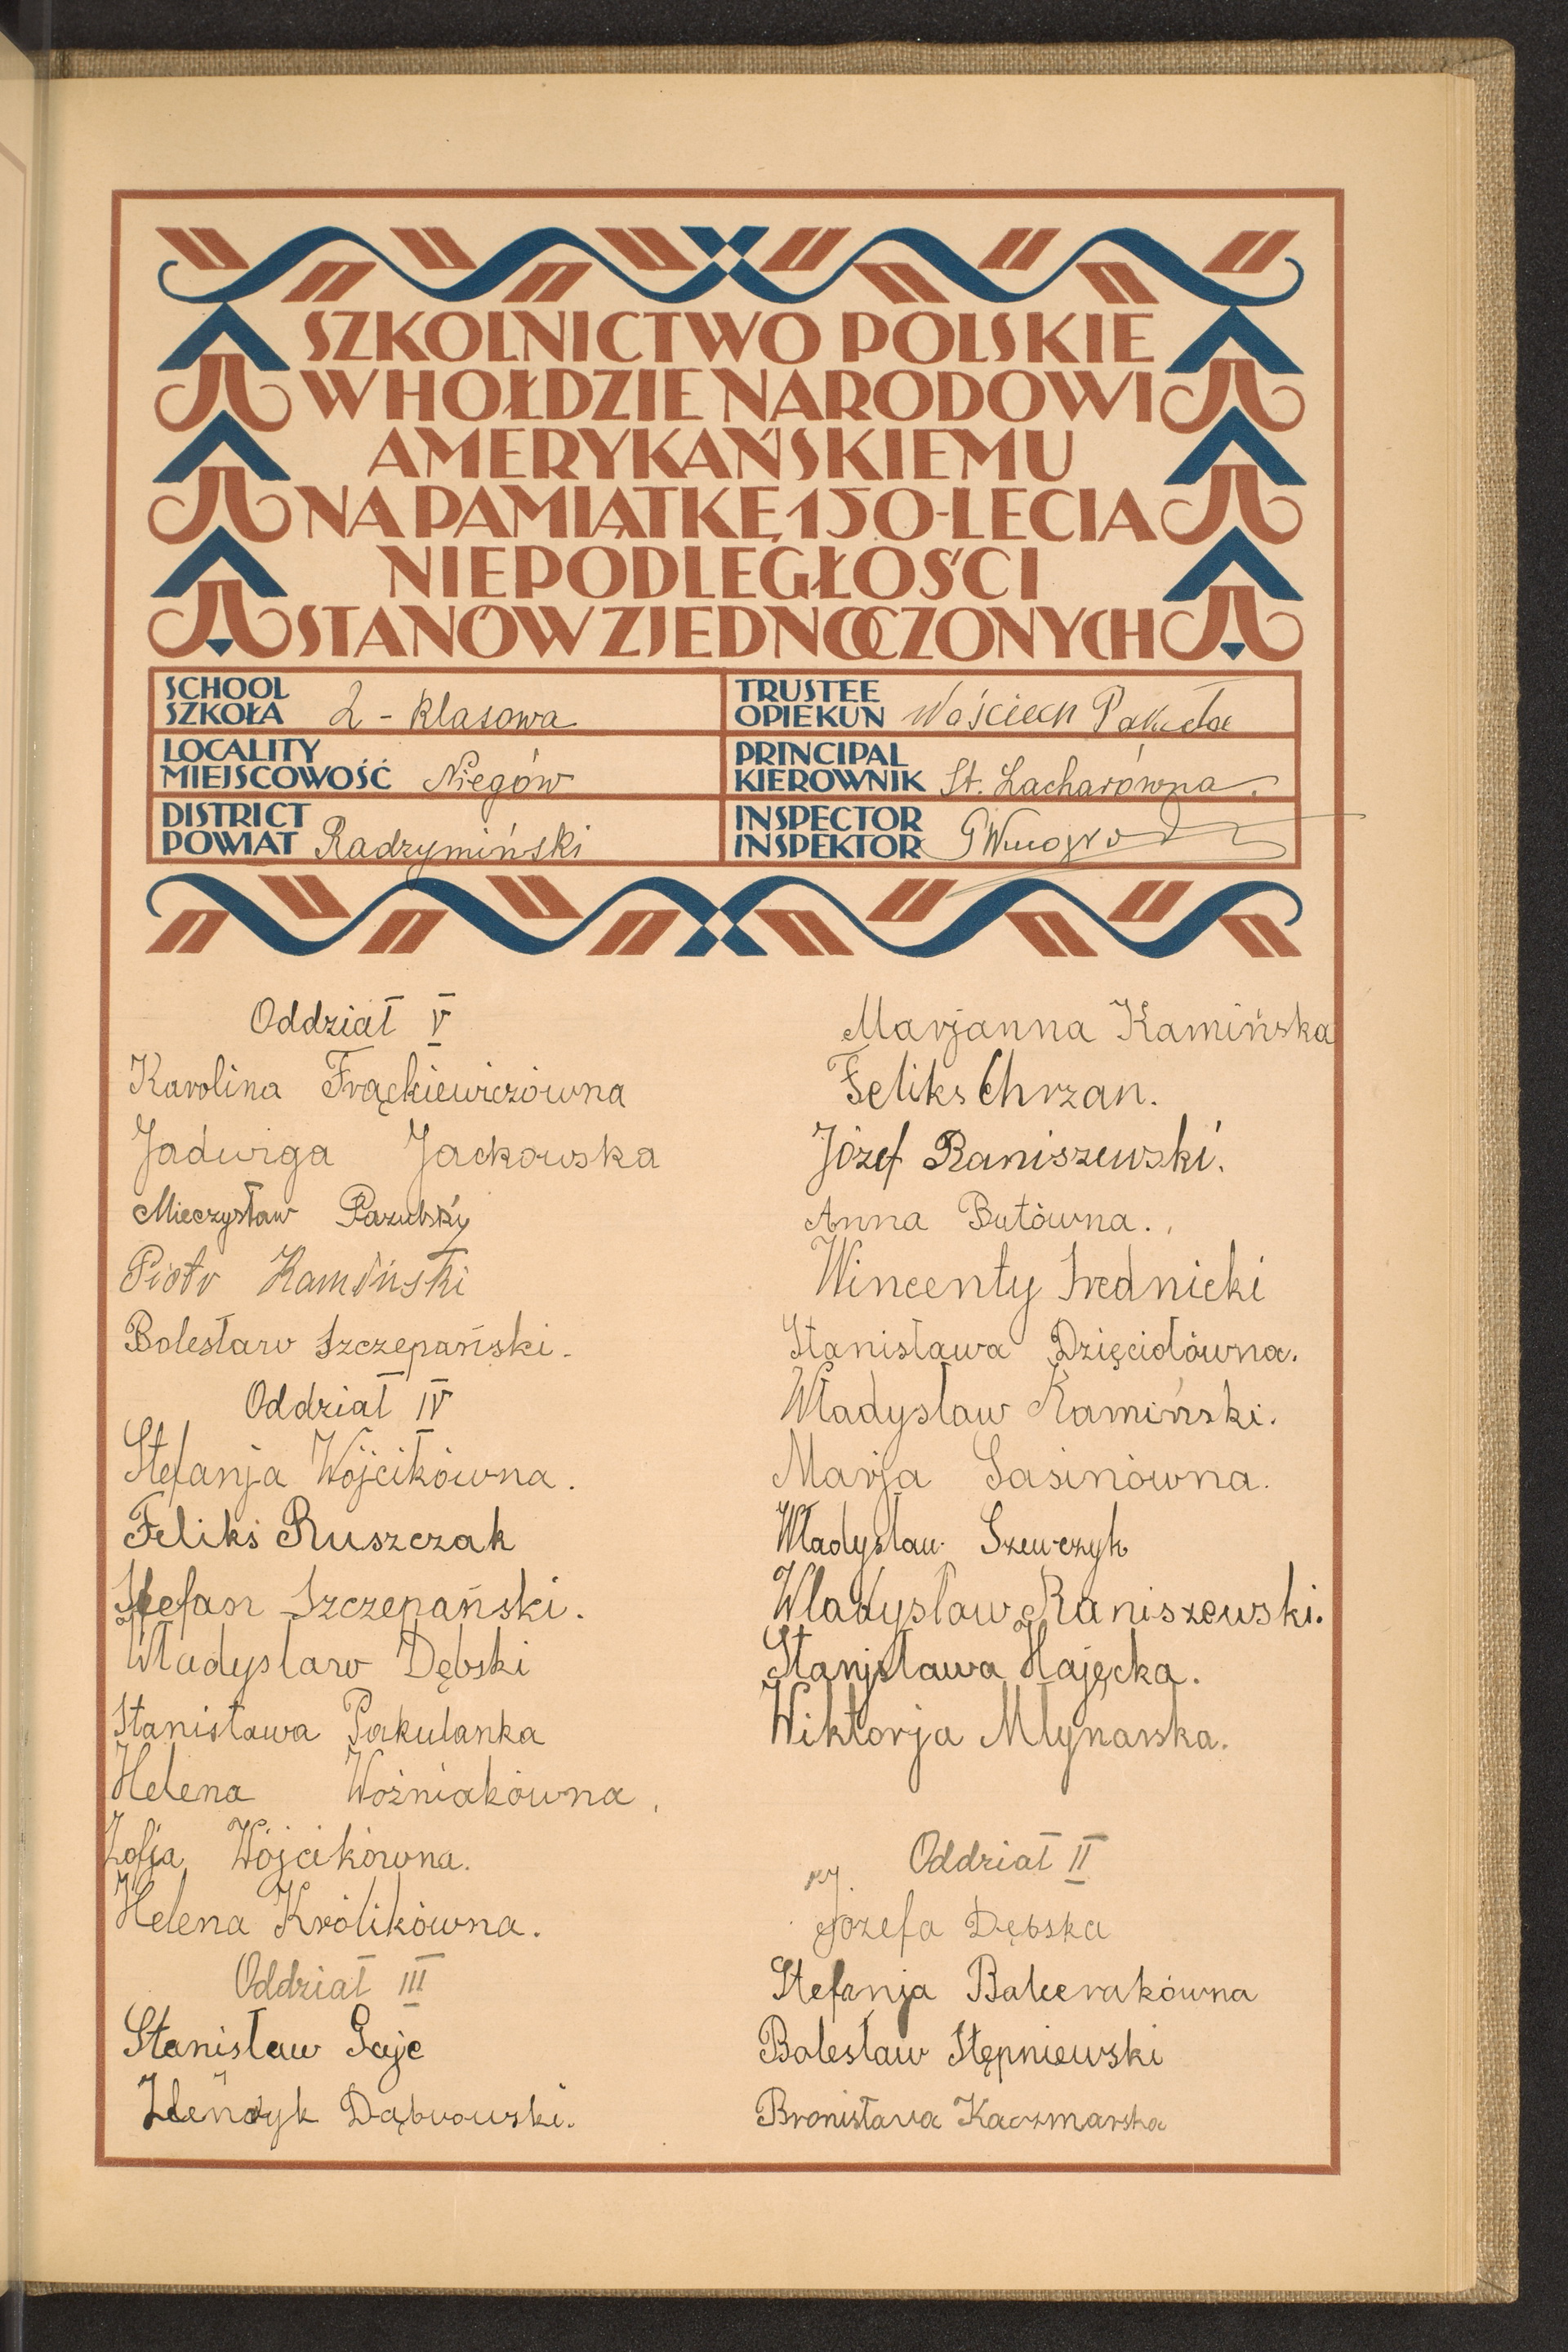 SZKOLNICTWO POLSKIE
W HOŁDZIE NARODOWI
AMERYKAŃSKIEMU
NA PAMIĄTKĘ 150-LECIA
NIEPODLEGŁOŚCI
STANÓW ZJEDNOCZONYCH
SCHOOL
SZKOŁA 2 - klasowa
TRUSTEE
OPIEKUN Wojciech Pakuła
LOCALITY
MIEJSCOWOŚĆ Niegów
PRINCIPAL
KIEROWNIK St. Zacharówna.
DISTRICT
POWIAT Radzymiński
INSPECTOR
INSPEKTOR
Oddział V
Karolina Frąckiewiczówna
Jadwiga Jackowska
Mieczysław
Piotr Kamiński
Bolesław Szczepański.
Oddział IV
Stefanja Wójcikówna.
Feliks Ruszczak
Stefan Szczepański.
Władysław Dębski
Stanisława Pakulanka
Helena Woźniakówna.
Zofja Wójcikówna.
Helena Królikówna.
Oddział III
Stanisław Gaje
Henryk Dąbrowski.
Marjanna Kamińska
Feliks Chrzan.
Józef Raniszewski.
Anna Butówna.
Wincenty Srednicki
Stanisława Dzięciołówna.
Władysław Kamiński.
Marja Sasinówna.
Władysław Szewczyk
Wladysław Raniszewski.
Stanisława Hajęcka.
Wiktorja Młynarska.
Oddział II
Józefa Dębska
Stefanja Balcerakówna
Bolesław Stępniewski
Bronisława Kaczmarska